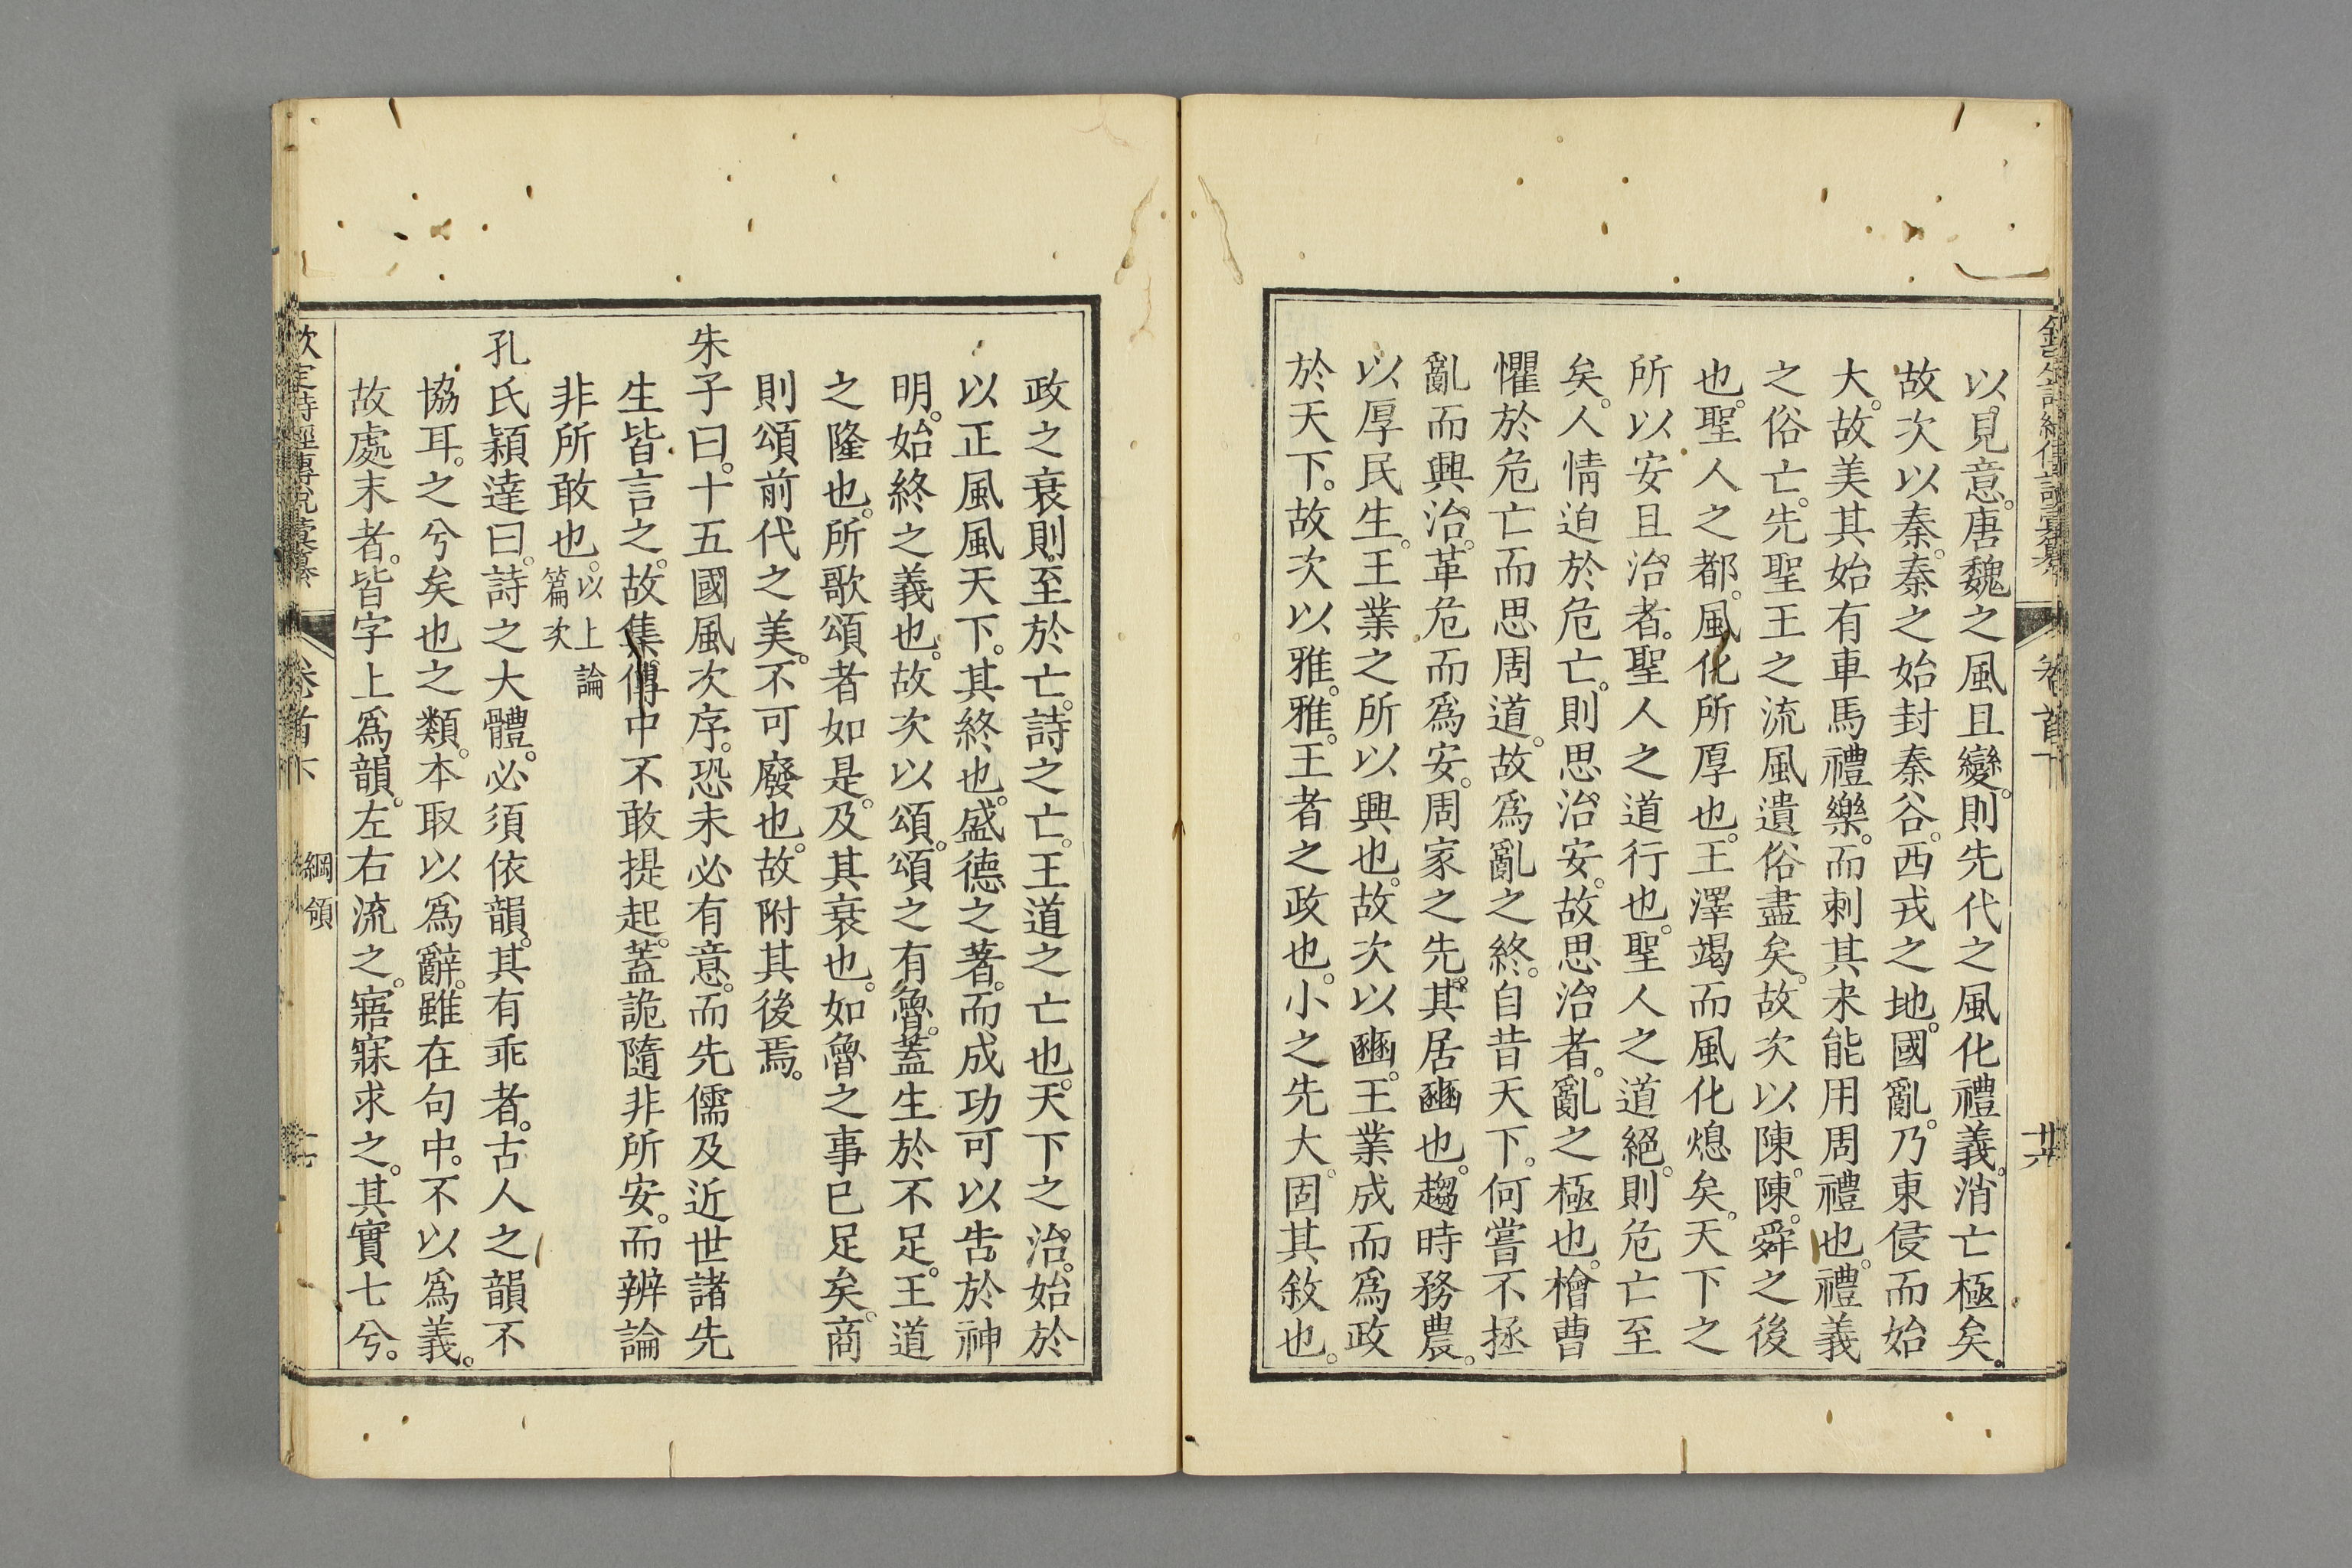 以見意。唐魏之風且變。則先代之風化禮義。消亡極矣。
故次以秦。秦之始封秦谷。西戎之地。國亂。乃東侵而始
大。故美其始有車馬禮樂。而刺其未能用周禮也。禮義
之俗亡。先聖王之流風遺俗盡矣。故次以陳。陳。舜之後
也。聖人之都。風化所厚也。王澤竭而風化熄矣。天下之
所以安且治者。聖人之道行也。聖人之道絕。則危亡至
矣。人情迫於危亡。則思治安。故思治者。亂之極也。檜曹
懼於危亡而思周道。故爲亂之終。自昔天下。何嘗不拯
亂而興治。革危而爲安。周家之先。其居豳也。趨時務農。
以厚民生。王業之所以興也。故次以豳。王業成而爲政
於天下。故次以雅。雅。王者之政也。小之先大。固其敘也。
卷首下
政之衰則至於亡。詩之亡。王道之亡也。天下之治。始於
以正風風天下。其終也。盛德之著。而成功可以告於神
明。始終之義也。故次以頌。頌之有魯。蓋生於不足。王道
之隆也。所歌頌者如是。及其衰也。如魯之事已足矣。商
則頌前代之美。不可廢也。故附其後焉。
朱子曰。十五國風次序。恐未必有意。而先儒及近世諸先
生皆言之。故集傳中不敢提起。蓋詭隨非所安。而辨論
非所敢也。以上論篇次
孔氏穎達曰。詩之大體。必須依韻。其有乖者。古人之韻不
協耳。之兮矣也之類。本取以爲辭。雖在句中。不以爲義。
故處末者。皆字上爲韻。左右流之。寤寐求之。其實七兮。
欽定詩經傳說彙纂
卷首下
綱領